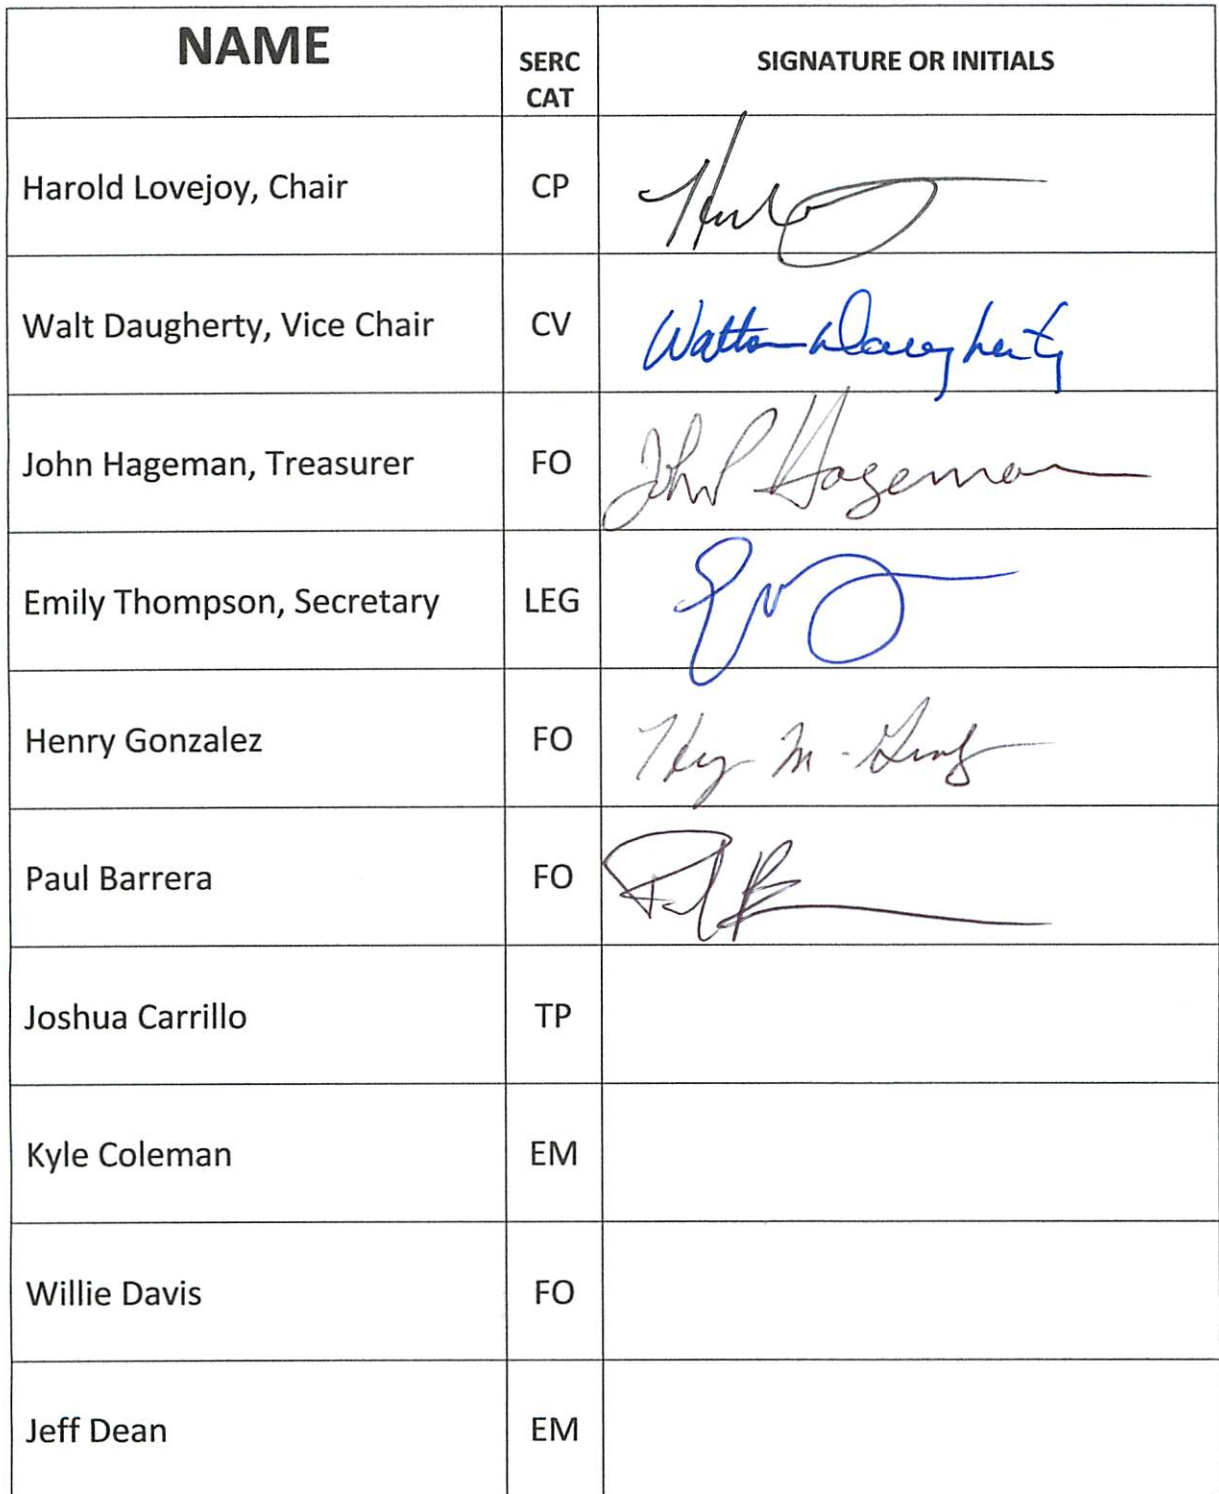 NAME
SERC
CAT
SIGNATURE OR INITIALS
Harold Lovejoy, Chair CP
Walt Daugherty, Vice Chair CV Walton Daugherty
John Hageman, Treasurer FO John P Hageman
Emily Thompson, Secretary LEG
Henry Gonzalez FO
Paul Barrera FO
Joshua Carrillo TP
Kyle Coleman EM
Willie Davis FO
Jeff Dean EM